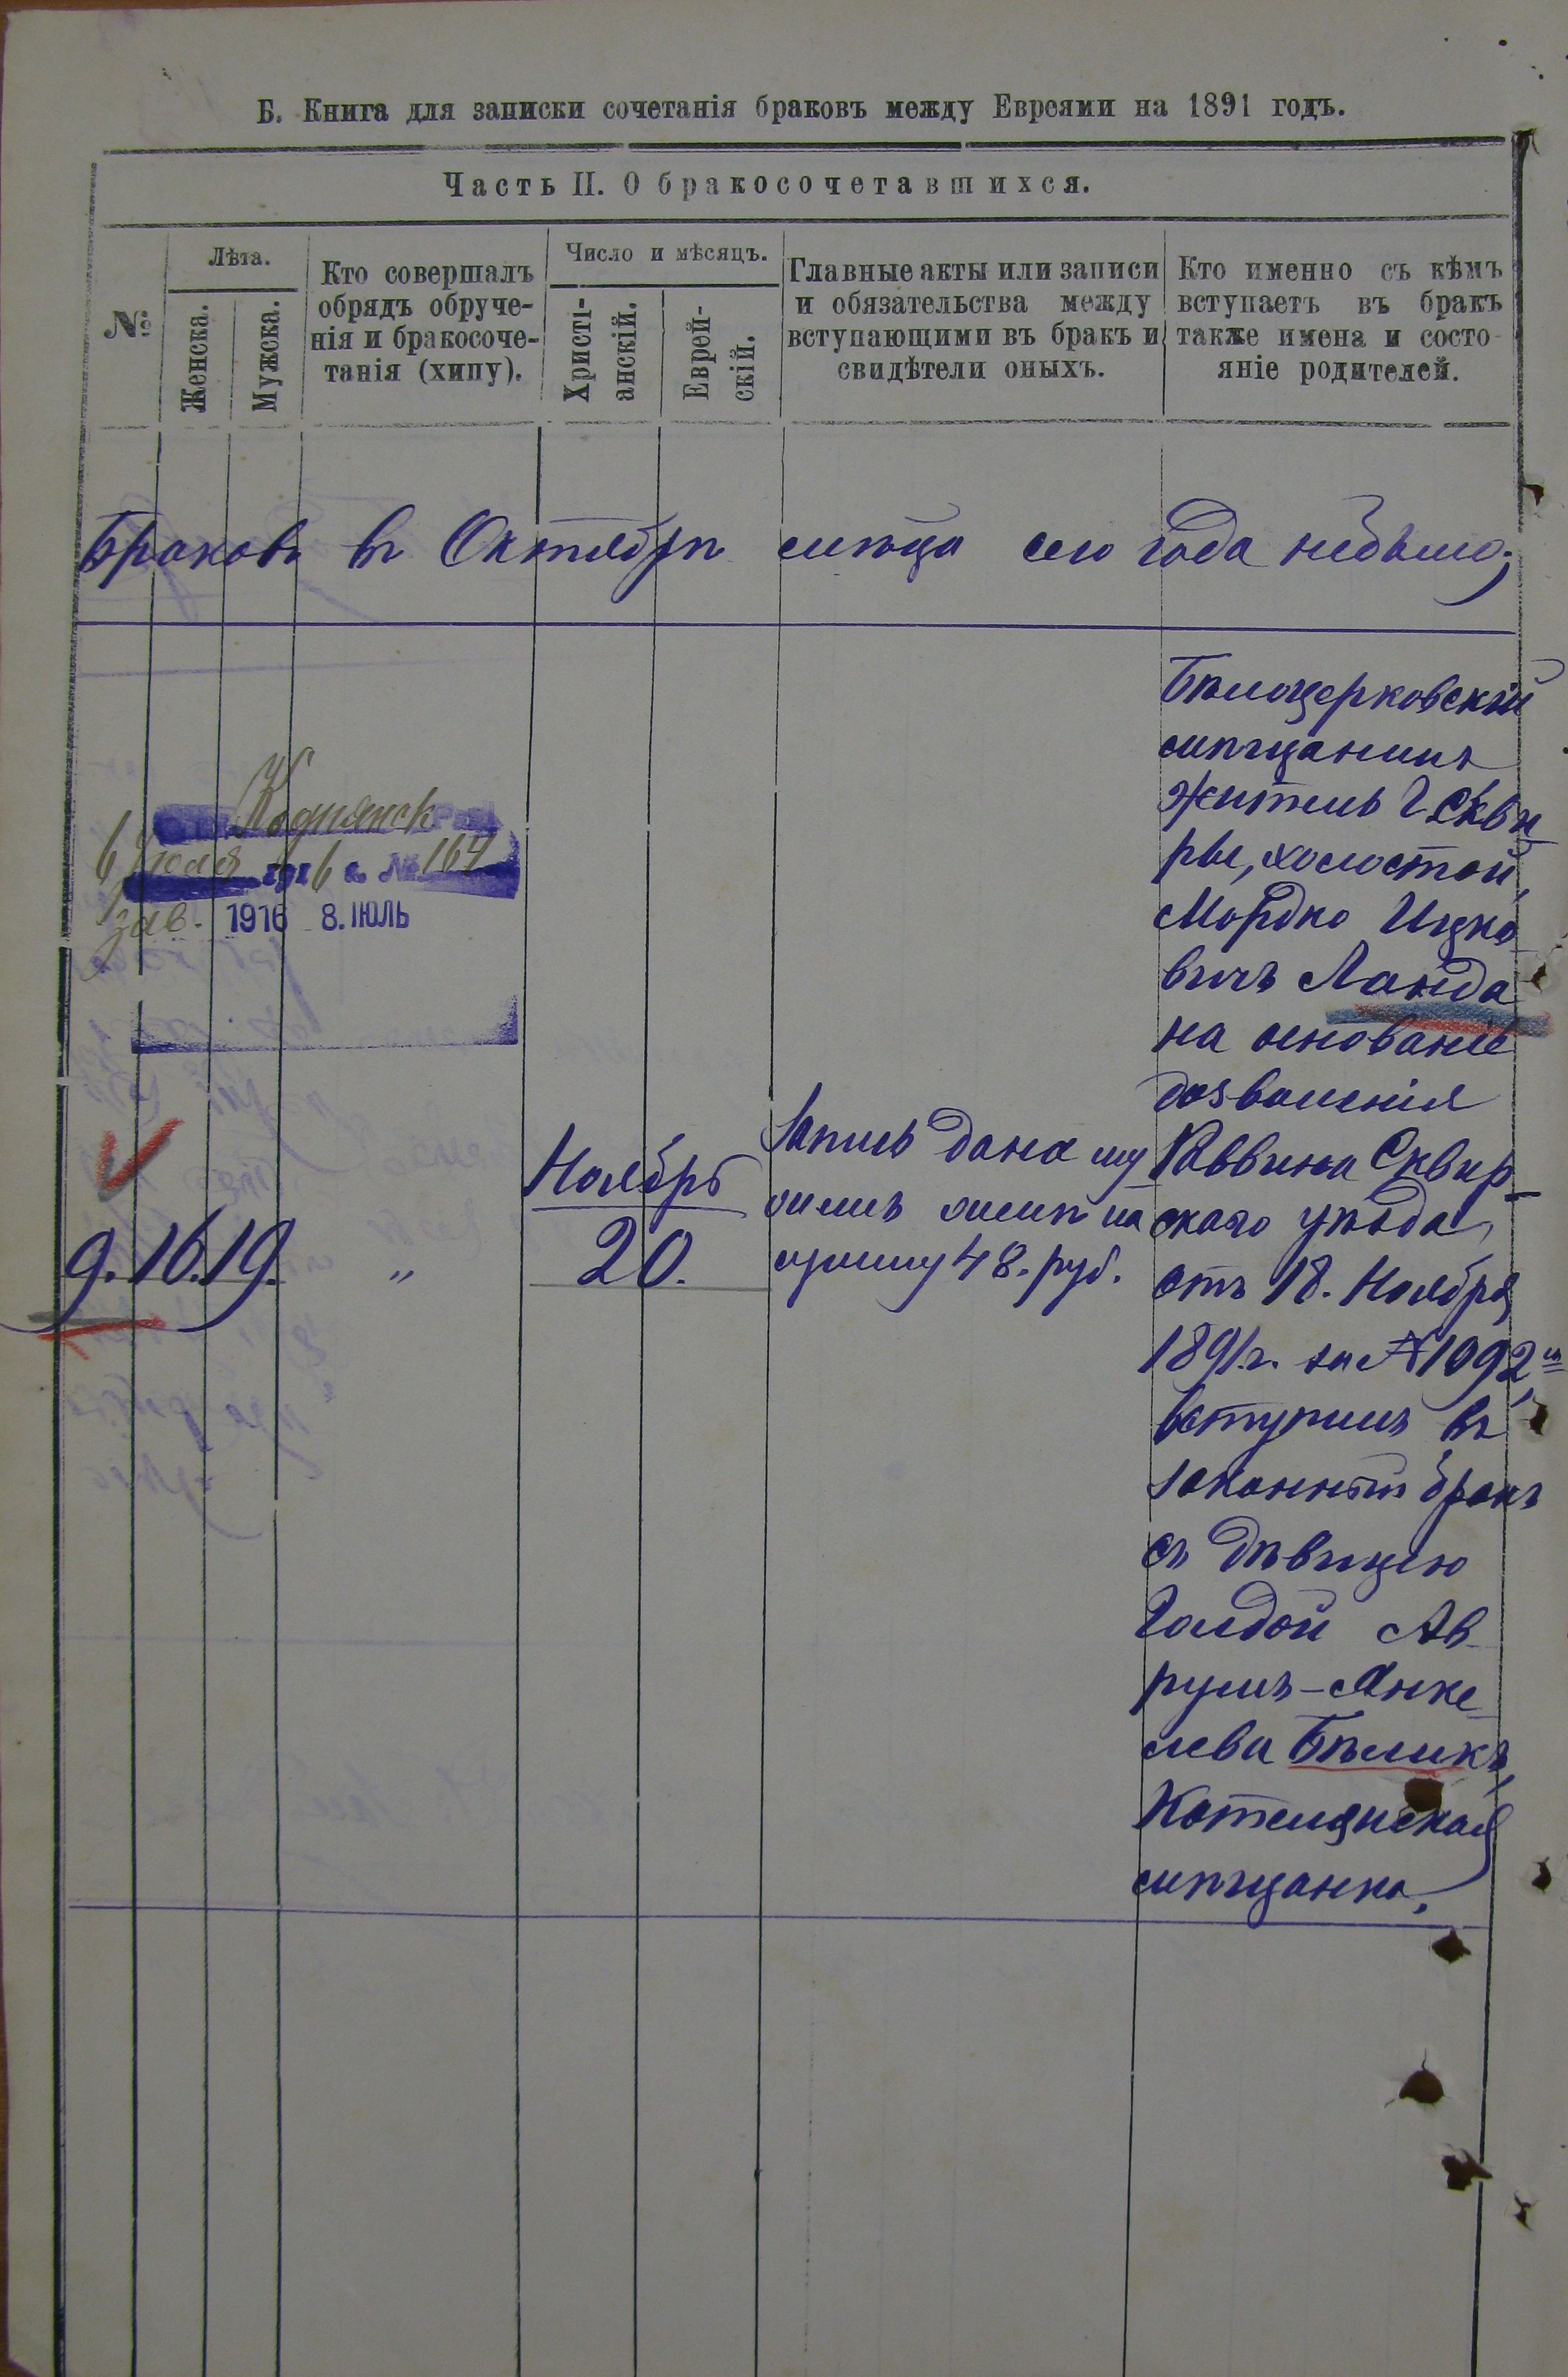 Б. Книга для записки сочетанія браковъ между Евреями на 1891 годъ.
Часть II. О бракосочетавшихся.
№
Лѣта.
Женска.
Мужска.
Кто совершалъ
обрядъ обруче-
нія и бракосоче-
танія (хипу).
Число и мѣсяцъ.
Христі-
анскій.
Еврей-
скій.
Главные акты или записи
и обязательства между
вступающими въ бракъ и
свидѣтели оныхъ.
Кто именно съ кѣмъ
вступаетъ въ бракъ
также имена и состо-
яніе родителей.
Браковъ въ Октябрѣ мѣсяца сего года небыло;
Кодиянск
6 Июля 1916 г. № 164
зав. 1916 8. ІЮЛЬ
9. 16. 19. „
Ноябрь
20.
Запись дана му
жемъ женѣ на
сумму 48. руб.
Бѣлоцерковскій
мѣщанинъ
житель г.Скви
ры, холостой,
Мордко Ицко
вичъ Ланда
на основаніе
дозволенія
Раввина Сквир-
скаго уѣзда,
отъ 18. Ноября
1891 г. за № 1092,
вступилъ въ
законный бракъ
съ дѣвицею
Голдой Ав
румъ-Янке
лева Бѣликъ,
Котелянская
мѣщанка,